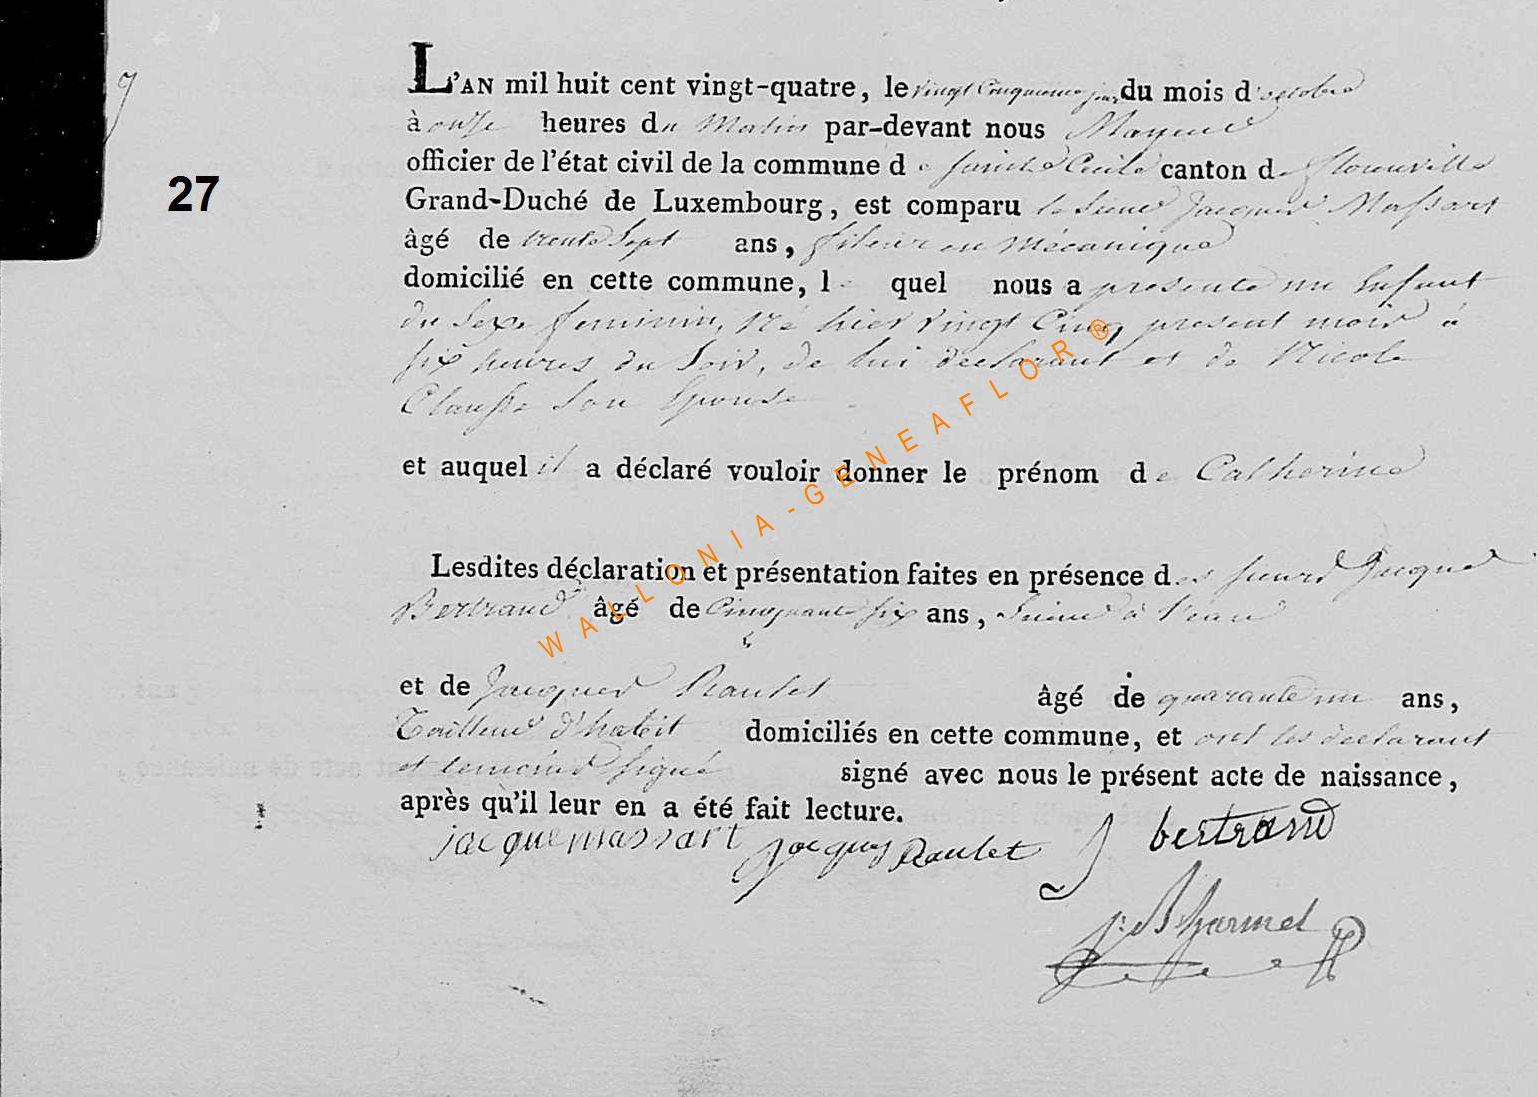 L'AN mil huit cent vingt-quatre, le vingt Cinquieme jour du mois d'octobre
à onze heures du Matin par-devant nous Mayeur
officier de l'état civil de la commune de Sainte Cecile canton de florenville
27
Grand-Duché de Luxembourg, est comparu le Sieur Jacques Massart
âgé de trente Sept ans, fileur en Mécanique
domicilié en cette commune, le quel nous a presenté un Enfant
du Sexe feminin, Né hier vingt Cinq present mois à
six heures du Soir, de lui declarant et de Nicole
Clausse Son Epouse
et auquel il a déclaré vouloir donner le prénom de Catherine
Lesdites déclaration et présentation faites en présence des sieurs Jacque
Bertrand âgé de Cinquante six ans,
et de Jacques Raulet âgé de quarante un ans,
Tailleur d'habit domiciliés en cette commune, et ont les declarant
et temoins signé signé avec nous le présent acte de naissance,
après qu'il leur en a été fait lecture.
jacque massart jacques Raulet J bertrand
WALLONIA-GENEAFLOR®